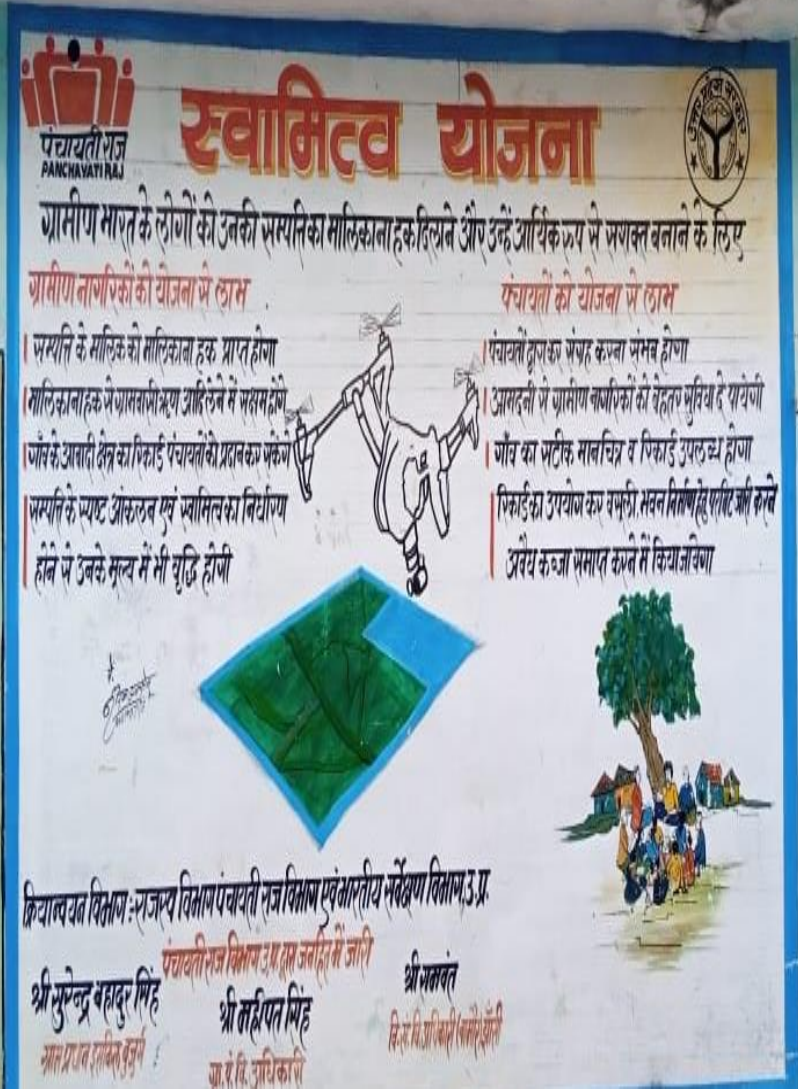 पंचायती राज
PANCHAYATI RAJ
स्वामित्व योजना
उत्तर प्रदेश सरकार
ग्रामीण भारत के लोगों को उनकी सम्पति का मालिकाना हक दिलाने और उन्हें आर्थिक रुप से सशक्त बनाने के लिए
ग्रामीण नागरिकों को योजना से लाभ
सम्पत्ति के मालिक को मालिकाना हक प्राप्त होगा
मालिकाना हक से ग्रामवासी ऋण आदि लेने में सक्षम होंगे
गाँव के आबादी क्षेत्र का रिकार्ड पंचायतों को प्रदान कर सकेंगे
सम्पत्ति के स्पष्ट आंकलन एवं स्वामित्व का निर्धारण
होने से उनके मूल्य में भी वृद्धि होगी
पंचायतों को योजना से लाभ
पंचायतों द्वारा कर संग्रह करना संभव होगा
आमदनी से ग्रामीण नागरिकों को बेहतर सुविधा दे पायेगी
गाँव का सटीक मानचित्र व रिकार्ड उपलब्ध होगा
रिकार्ड का उपयोग कर वसूली, भवन निर्माण हेतु परमिट जारी करने
अवैध कब्जा समाप्त करने में किया जायेगा
क्रियान्वयन विभाग :- राजस्व विभाग पंचायती राज विभाग एवं भारतीय सर्वेक्षण विभाग, उ.प्र.
पंचायती राज विभाग उ.प्र. द्वारा जनहित में जारी
श्री सुरेन्द्र बहादुर सिंह
ग्राम प्रधान बुजुर्ग
श्री महीपत सिंह
ग्रा. पं. वि. अधिकारी
श्री रामवंत